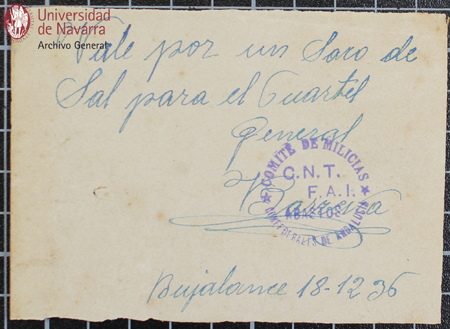 Universidad
de Navarra
Archivo General
Vale por un Saco de
Sal para el Cuartel
General
COMITÉ DE MILICIAS
C.N.T.
F.A.I.
ABASTOS
CONFEDERALES DE ANDALUCIA
Bujalance 18-12-36